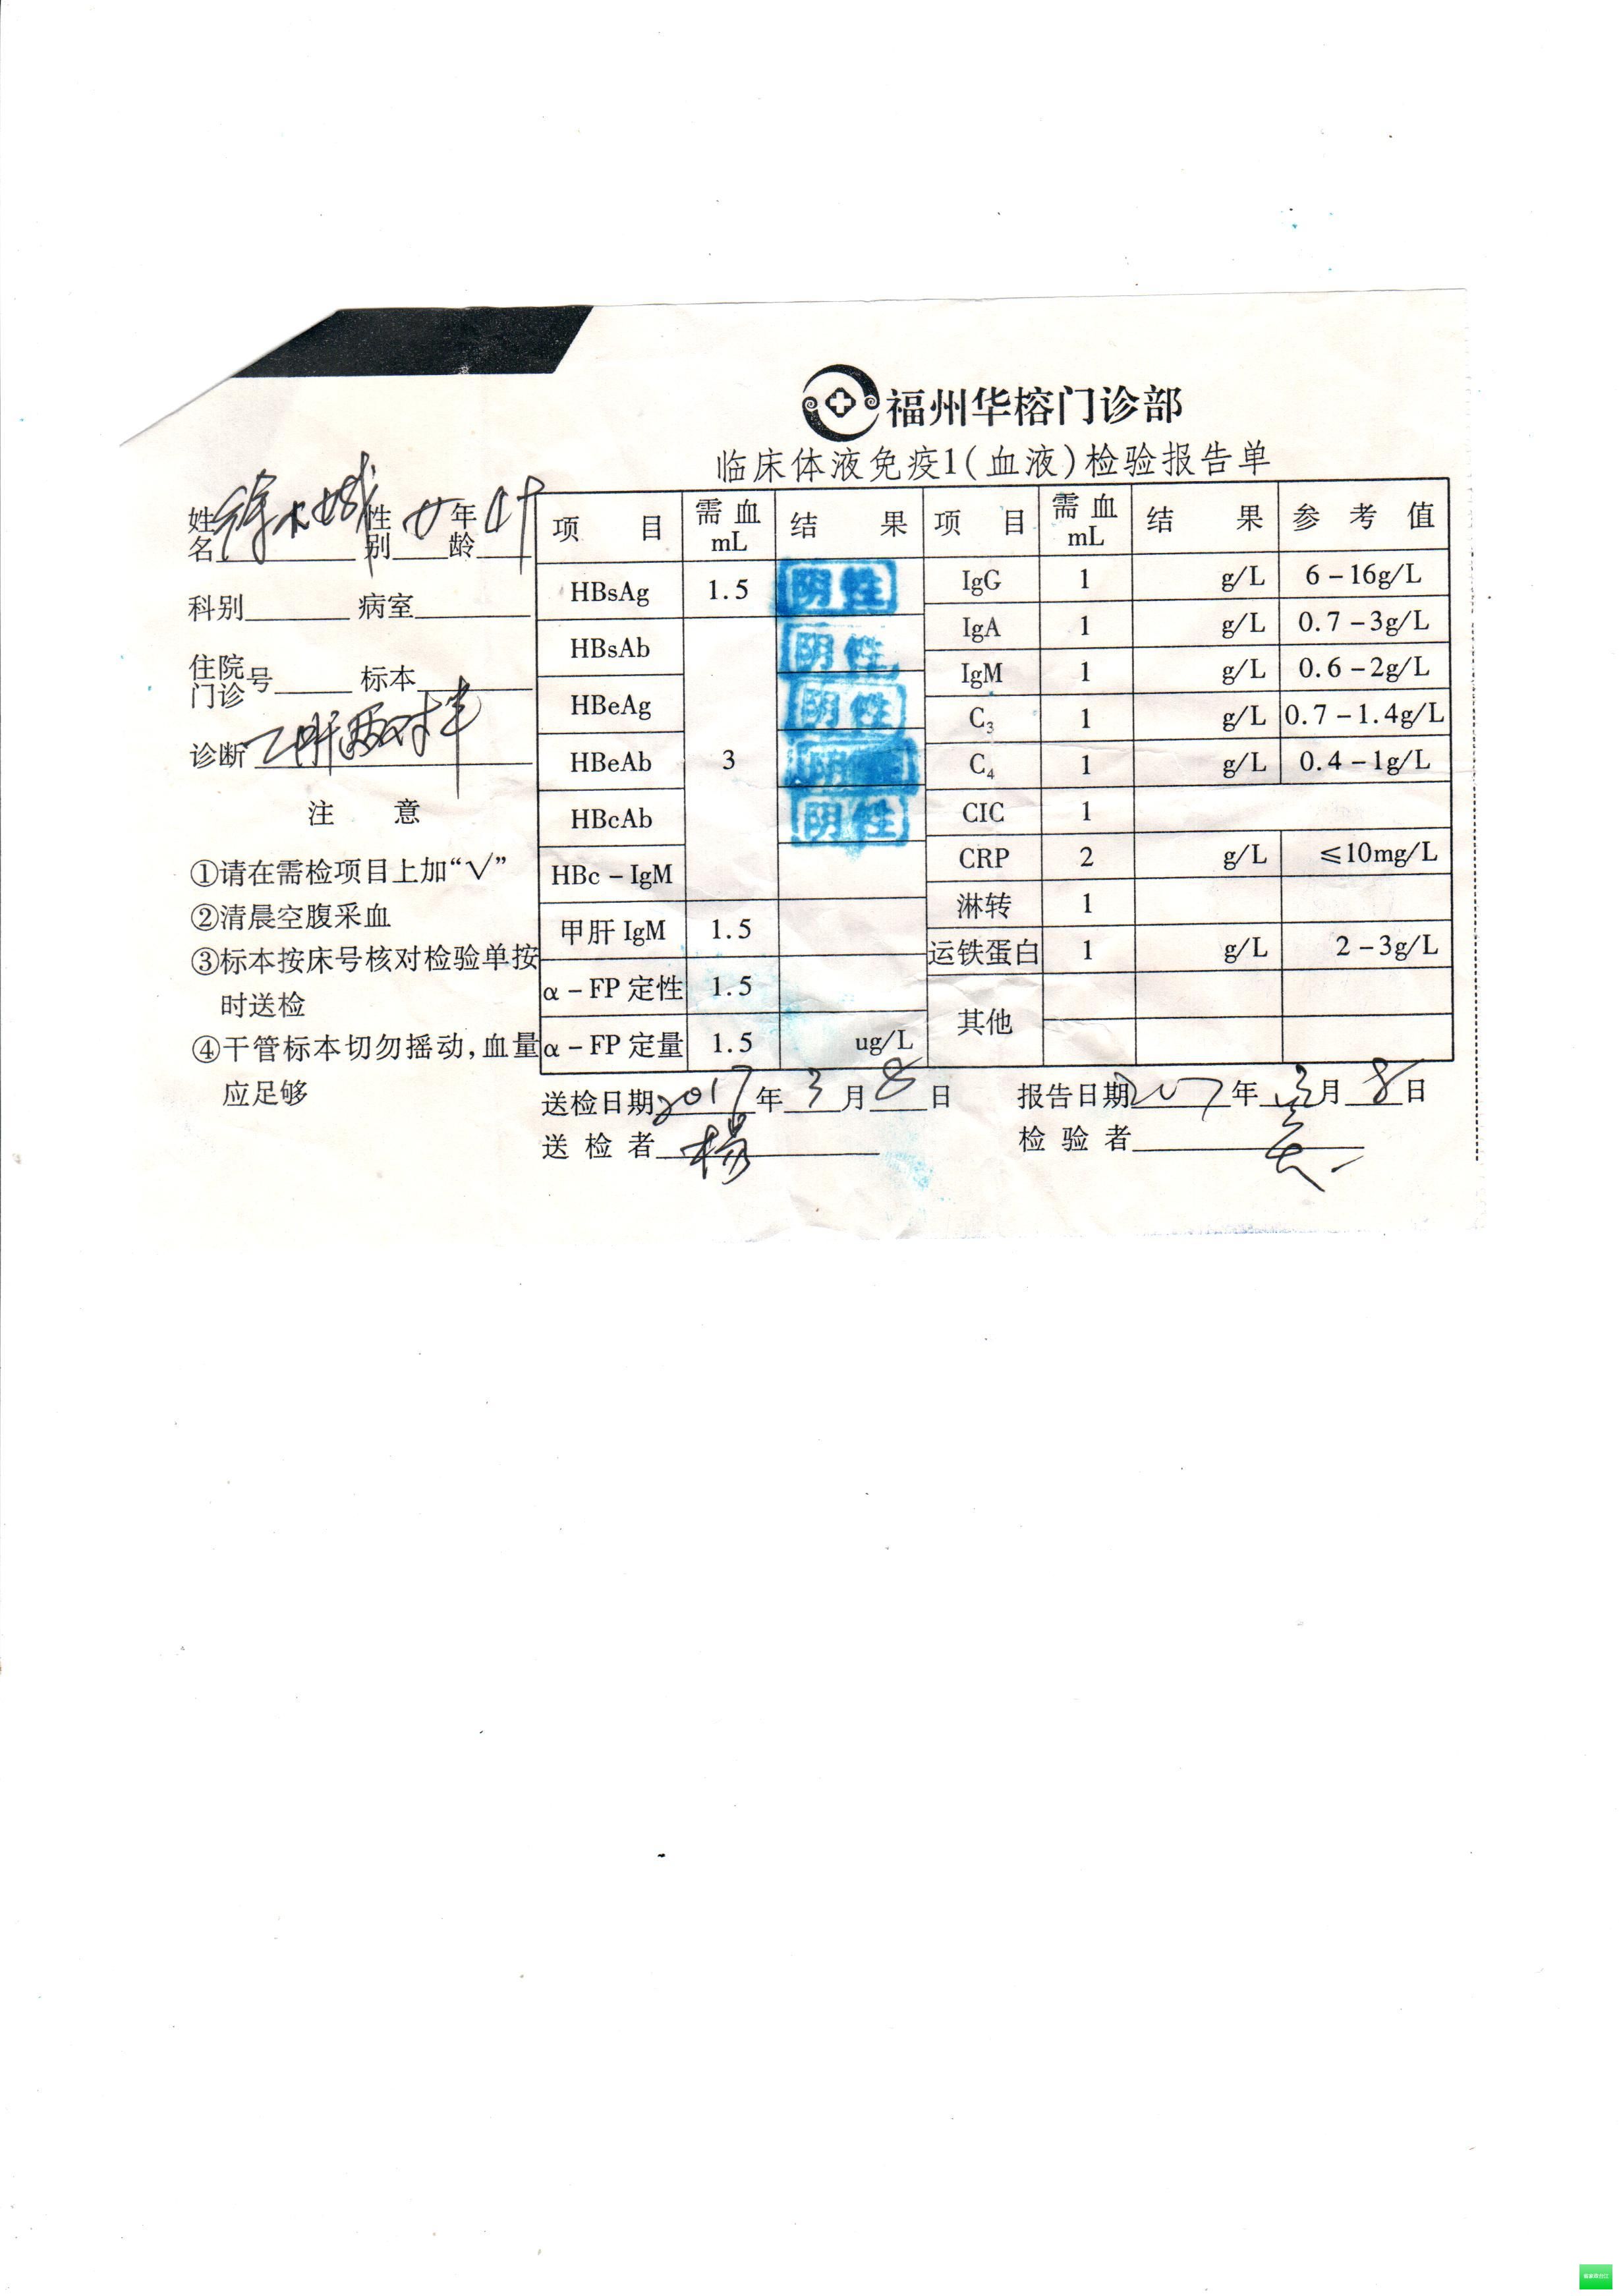 福州华榕门诊部
临床体液免疫1(血液)检验报告单
姓名 性别 女 年龄
科别 病室
住院门诊号 标本
诊断 乙肝两对半
注 意
①请在需检项目上加“√”
②清晨空腹采血
③标本按床号核对检验单按
时送检
④干管标本切勿摇动,血量
应足够
项 目 需血 mL 结 果 项 目 需血 mL 结 果 参 考 值
HBsAg 1.5 阴性 IgG 1 g/L 6-16g/L
HBsAb 阴性 IgA 1 g/L 0.7-3g/L
HBeAg 阴性 IgM 1 g/L 0.6-2g/L
C3 1 g/L 0.7-1.4g/L
HBeAb 3 阴性 C4 1 g/L 0.4-1g/L
HBcAb 阴性 CIC 1
HBc-IgM CRP 2 g/L ≤10mg/L
甲肝 IgM 1.5 淋转 1
运铁蛋白 1 g/L 2-3g/L
α-FP 定性 1.5 其他
α-FP 定量 1.5 ug/L
送检日期 2017 年 3 月 8 日 报告日期 2017 年 3 月 8 日
送检者 杨 检验者